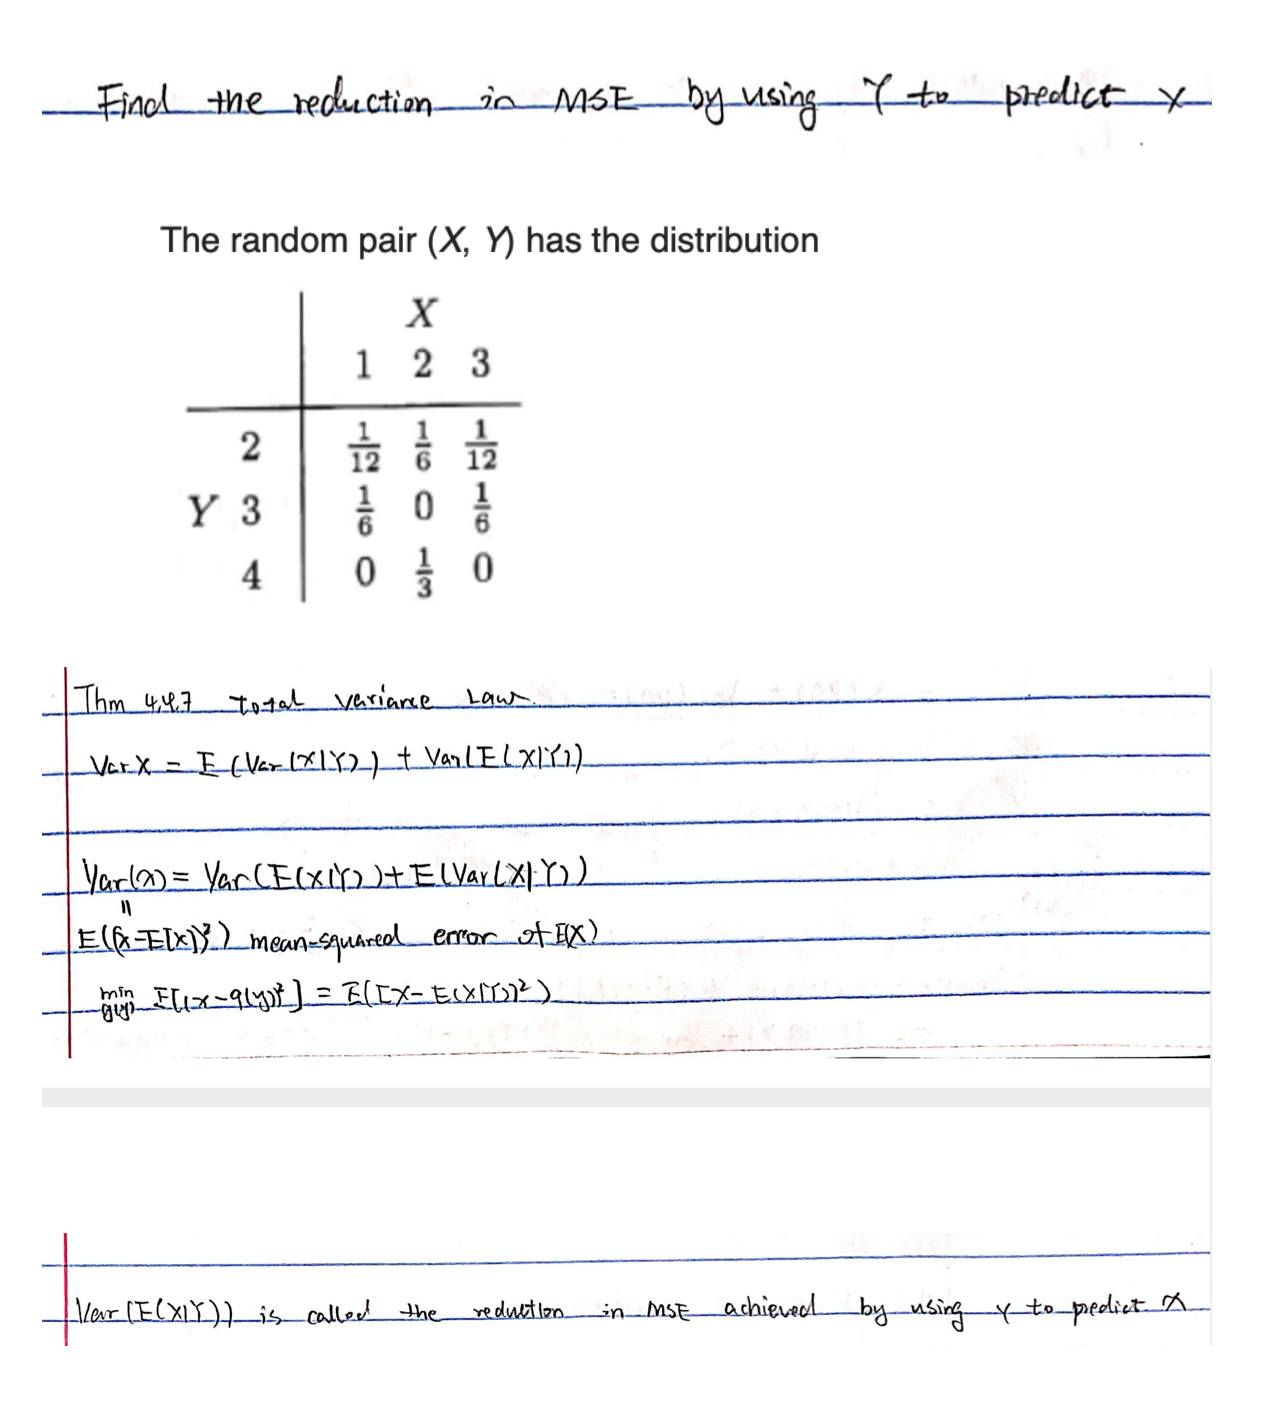 Find the reduction in MSE by using Y to predict X
The random pair (X, Y) has the distribution
X
1 2 3
2 1/12 1/6 1/12
Y 3 1/6 0 1/6
4 0 1/3 0
Thm 4.4.7 total variance Law.
Var X = E (Var (X|Y)) + Var(E(X|Y))
Var(x) = Var(E(X|Y)) + E(Var(X|Y))
"
E((x-E[x])²) mean-squared error of E(X)
min g(y) E[(x-g(y))²] = E([X-E(X|Y)]²)
Var(E(X|Y)) is called the reduction in MSE achieved by using Y to predict X